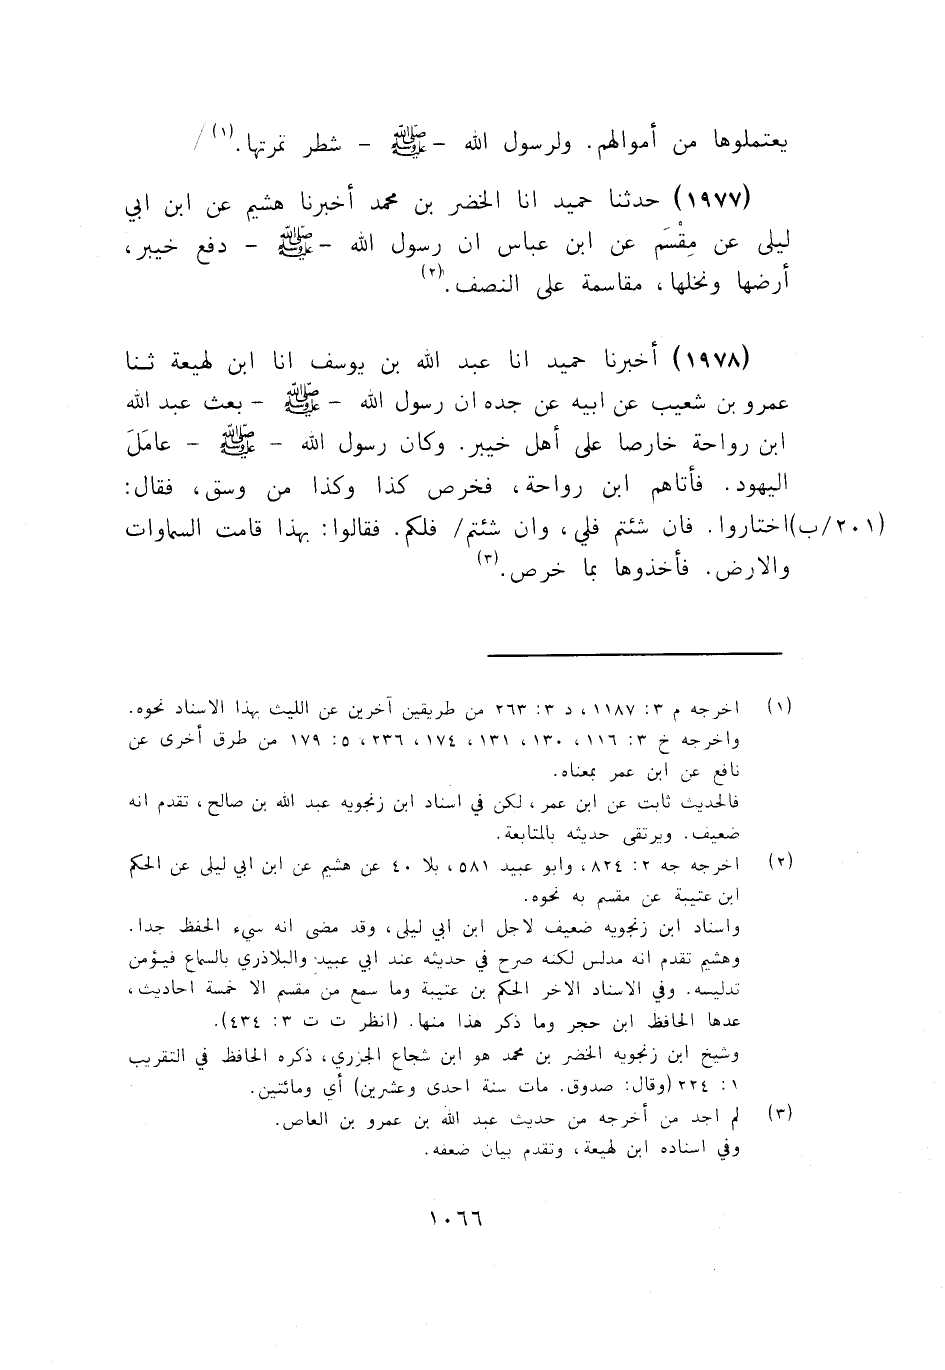 يعتملوها من أموالهم. ولرسول الله -ﷺ - شطر ثمرتها.(١)/
(١٩٧٧) حدثنا حميد انا الخضر بن محمد أخبرنا هشيم عن ابن ابي
ليلى عن مِقْسَم عن ابن عباس ان رسول الله -ﷺ - دفع خيبر،
أرضها ونخلها، مقاسمة على النصف.(٢)
(١٩٧٨) أخبرنا حميد انا عبد الله بن يوسف انا ابن لهيعة ثنا
عمرو بن شعيب عن ابيه عن جده ان رسول الله - ﷺ - بعث عبد الله
ابن رواحة خارصا على أهل خيبر. وكان رسول الله - ﷺ - عامَلَ
اليهود. فأتاهم ابن رواحة، فخرص كذا وكذا من وسق، فقال:
(٢٠١/ب)اختاروا. فان شئتم فلي، وان شئتم/ فلكم. فقالوا: بهذا قامت السماوات
والارض. فأخذوها بما خرص.(٣)
(١) اخرجه م ٣: ١١٨٧، د ٣: ٢٦٣ من طريقين آخرين عن الليث بهذا الاسناد نحوه.
واخرجه خ ٣: ١١٦، ١٣٠، ١٣١، ١٧٤، ٢٣٦، ٥: ١٧٩ من طرق أخرى عن
نافع عن ابن عمر بمعناه.
فالحديث ثابت عن ابن عمر، لكن في اسناد ابن زنجويه عبد الله بن صالح، تقدم انه
ضعيف. ويرتقى حديثه بالمتابعة.
(٢) اخرجه جه ٢: ٨٢٤، وابو عبيد ٥٨١، بلا ٤٠ عن هشيم عن ابن ابي ليلى عن الحكم
ابن عتيبة عن مقسم به نحوه.
واسناد ابن زنجويه ضعيف لاجل ابن ابي ليلى، وقد مضى انه سيء الحفظ جدا.
وهشيم تقدم انه مدلس لكنه صرح في حديثه عند ابي عبيد والبلاذري بالسماع فيؤمن
تدليسه. وفي الاسناد الاخر الحكم بن عتيبة وما سمع من مقسم الا خمسة احاديث،
عدها الحافظ ابن حجر وما ذكر هذا منها. (انظر ت ت ٣: ٤٣٤).
وشيخ ابن زنجويه الخضر بن محمد هو ابن شجاع الجزري، ذكره الحافظ في التقريب
١: ٢٢٤ (وقال: صدوق. مات سنة احدى وعشرين) أي ومائتين.
(٣) لم اجد من أخرجه من حديث عبد الله بن عمرو بن العاص.
وفي اسناده ابن لهيعة، وتقدم بيان ضعفه.
١٠٦٦